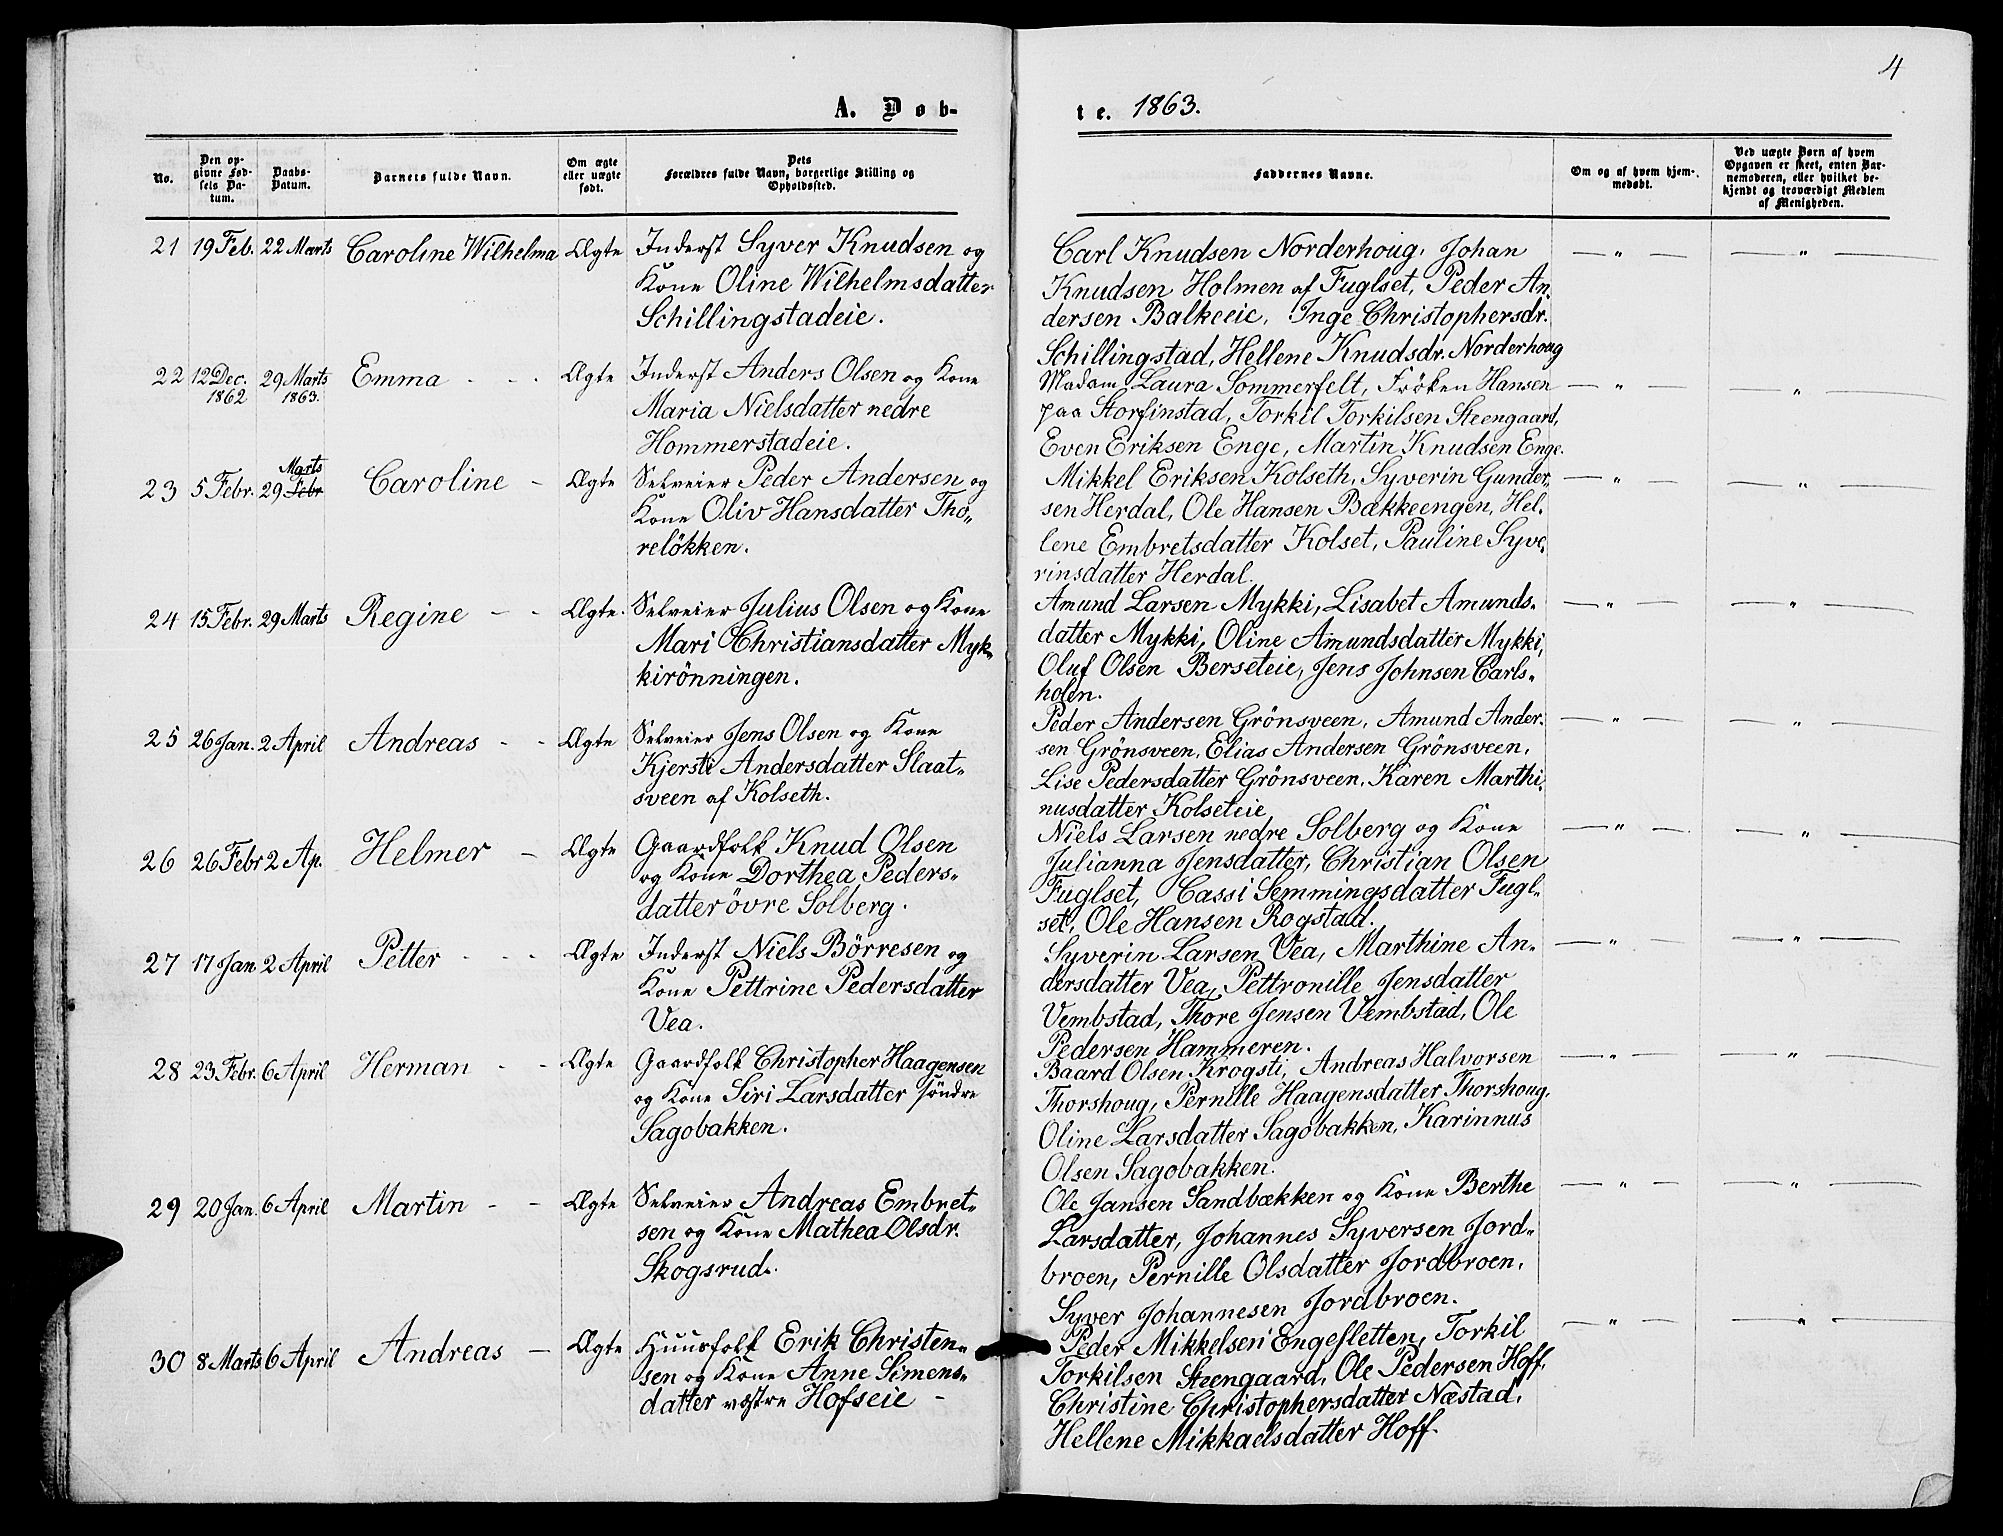 4
A. Døb-
te. 1863.
No.
Den op-
givne Fød-
sels Da-
tum.
Daabs-
Datum.
Barnets fulde Navn.
Om ægte
eller uægte
født.
Dets
Forældres fulde Navn, borgerlige Stilling og
Opholdssted.
Faddernes Navne.
Om og af hvem hjem-
medøbt.
Ved uægte Børn af hvem
Opgaven er skeet, enten Bar-
nemoderen, eller hvilket be-
kjendt og troværdigt Medlem
af Menigheden.
21 19 Feb. 22 Marts Caroline Wilhelma Ægte Inderst Syver Knudsen og
Kone Oline Wilhelmsdatter
Schillingstadeie.
Carl Knudsen Norderhoug, Johan
Knudsen Holmen af Fuglset, Peder An-
dersen Balkeeie, Inge Christophersdr.
Schillingstad, Hellene Knudsdr. Norderhoug
22 12 Dec. 1862 29 Marts 1863. Emma - - - Ægte Inderst Anders Olsen og Kone
Maria Nielsdatter nedre
Hommerstadeie.
Madam Laura Sommerfelt, Frøken Hansen
paa Storfinstad, Torkil Torkilsen Steengaard,
Even Eriksen Enge, Martin Knudsen Enge.
23 5 Febr. 29 Febr Marts Caroline - Ægte Selveier Peder Andersen og
Kone Oliv Hansdatter Tho-
reløkken.
Mikkel Eriksen Kolseth, Syverin Gunder-
sen Herdal, Ole Hansen Bakkeengen, Hel-
lene Embretsdatter Kolset, Pauline Syve-
rinsdatter Herdal.
24 15 Febr. 29 Marts Regine - - Ægte. Selveier Julius Olsen og Kone
Mari Christiansdatter Myk-
kirönningen.
Amund Larsen Mykki, Lisabet Amunds-
datter Mykki, Oline Amundsdatter Mykki,
Oluf Olsen Berseteie, Jens Johnsen Carls-
holen.
25 26 Jan. 2 April Andreas - - Ægte Selveier Jens Olsen og Kone
Kjersti Andersdatter Slaat-
sveen af Kolseth.
Peder Andersen Grönsveen, Amund Ander-
sen Grönsveen, Elias Andersen Grönsveen,
Lise Pedersdatter Grönsveen, Karen Marthi-
nusdatter Kolseteie
26 26 Febr 2 Ap. Helmer - Ægte Gaardfolk Knud Olsen
og Kone Dorthea Peders-
datter övre Solberg.
Niels Larsen nedre Solberg og Kone
Julianna Jensdatter, Christian Olsen
Fuglset, Cassi Semmingsdatter Fugl-
set, Ole Hansen Rogstad.
27 17 Jan. 2 April Petter - - - Ægte Inderst Niels Börresen og
Kone Pettrine Pedersdatter
Vea.
Syverin Larsen Vea, Marthine An-
dersdatter Vea, Pettronille Jensdatter
Vembstad, Thore Jensen Vembstad, Ole
Pedersen Hammeren.
28 23 Febr. 6 April Herman - - Ægte Gaardfolk Christopher Haagensen
og Kone Siri Larsdatter söndre
Sagobakken.
Baard Olsen Krogsti, Andreas Halvorsen
Thorshoug, Pernille Haagensdatter Thorshoug,
Oline Larsdatter Sagobakken, Karinnus
Olsen Sagobakken.
29 20 Jan. 6 April Martin - - Ægte Selveier Andreas Embret-
sen og Kone Mathea Olsdr.
Skogsrud.
Ole Jansen Sandbækken og Kone Berthe
Larsdatter, Johannes Syversen Jord-
broen, Pernille Olsdatter Jordbroen,
Syver Johannesen Jordbroen.
30 8 Marts 6 April Andreas - Ægte Huusfolk Erik Christen-
sen og Kone Anne Simens-
datter vestre Hofseie -
Peder Mikkelsen Engefletten, Torkil
Torkilsen Steengaard, Ole Pedersen Hoff,
Christine Christophersdatter Næstad,
Hellene Mikkaelsdatter Hoff.